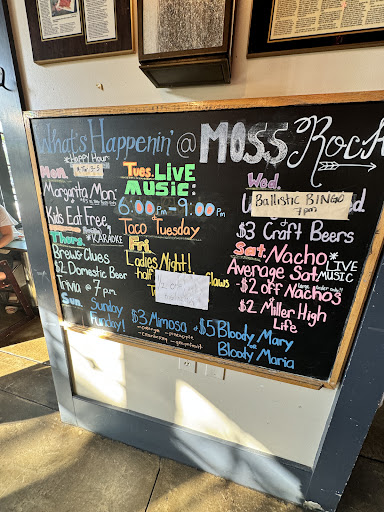 What's Happenin' @ MOSS Rock
*Happy Hour
Mon.
Margarita Mon.
Kids Eat Free
*KARAOKE
Thurs.
Brews & Clues
$2 Domestic Beer
Trivia @ 7pm
Sun.
Sunday
Funday!
Tues. LIVE
MUSIC:
6:00 Pm - 9:00 Pm
Taco Tuesday
Fri.
Ladies Night!
half
$3 Mimosa
- orange - pineapple
- cranberry - grapefruit
Wed.
BALLISTIC BINGO
7pm
$3 Craft Beers
Sat. Nacho *LIVE
Average Sat MUSIC
-$2 off Nachos
$2 Miller High
Life
$5 Bloody Mary
Bloody Maria